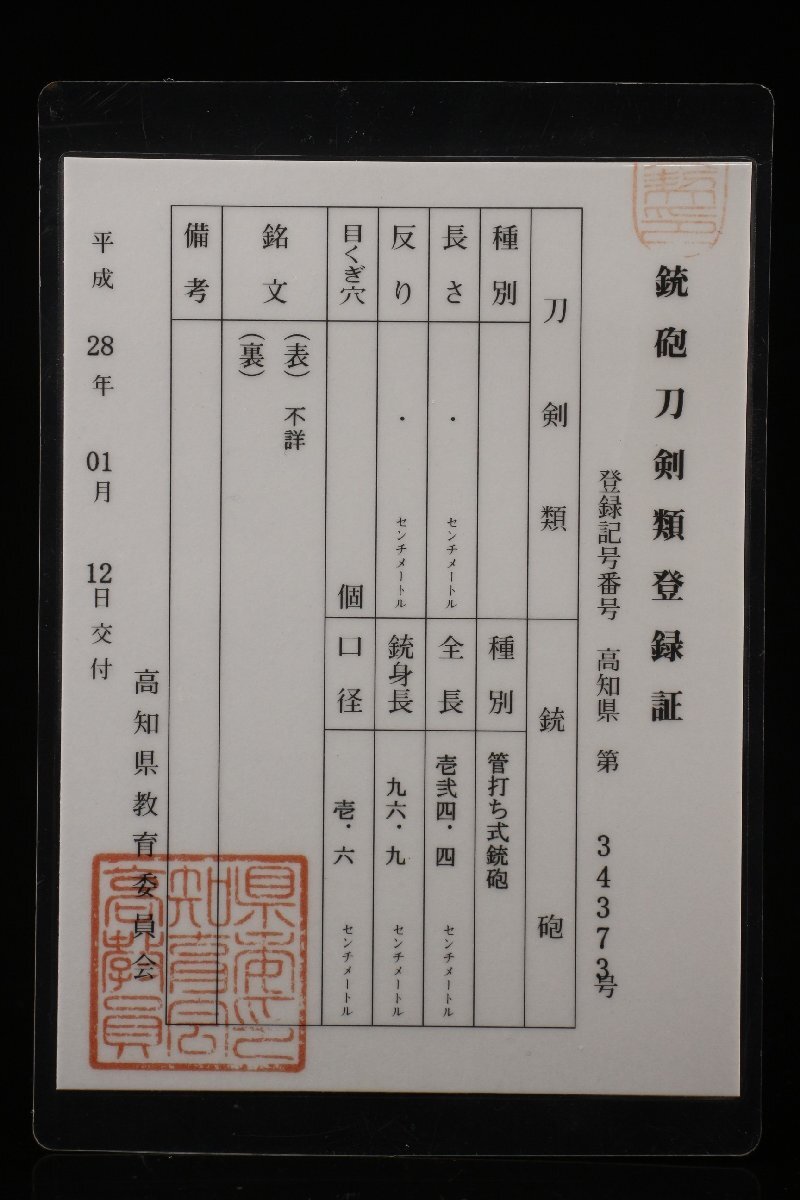 銃砲刀剣類登録証
登録記号番号 高知県 第 34373号
刀剣類
銃砲
種別
種別
管打ち式銃砲
長さ
・ センチメートル
全長
壱弐四・四 センチメートル
反り
・ センチメートル
銃身長
九六・九 センチメートル
目くぎ穴
個
口径
壱・六 センチメートル
銘文
(表) 不詳
(裏)
備考
高知県教育委員会
平成 28年 01月 12日交付